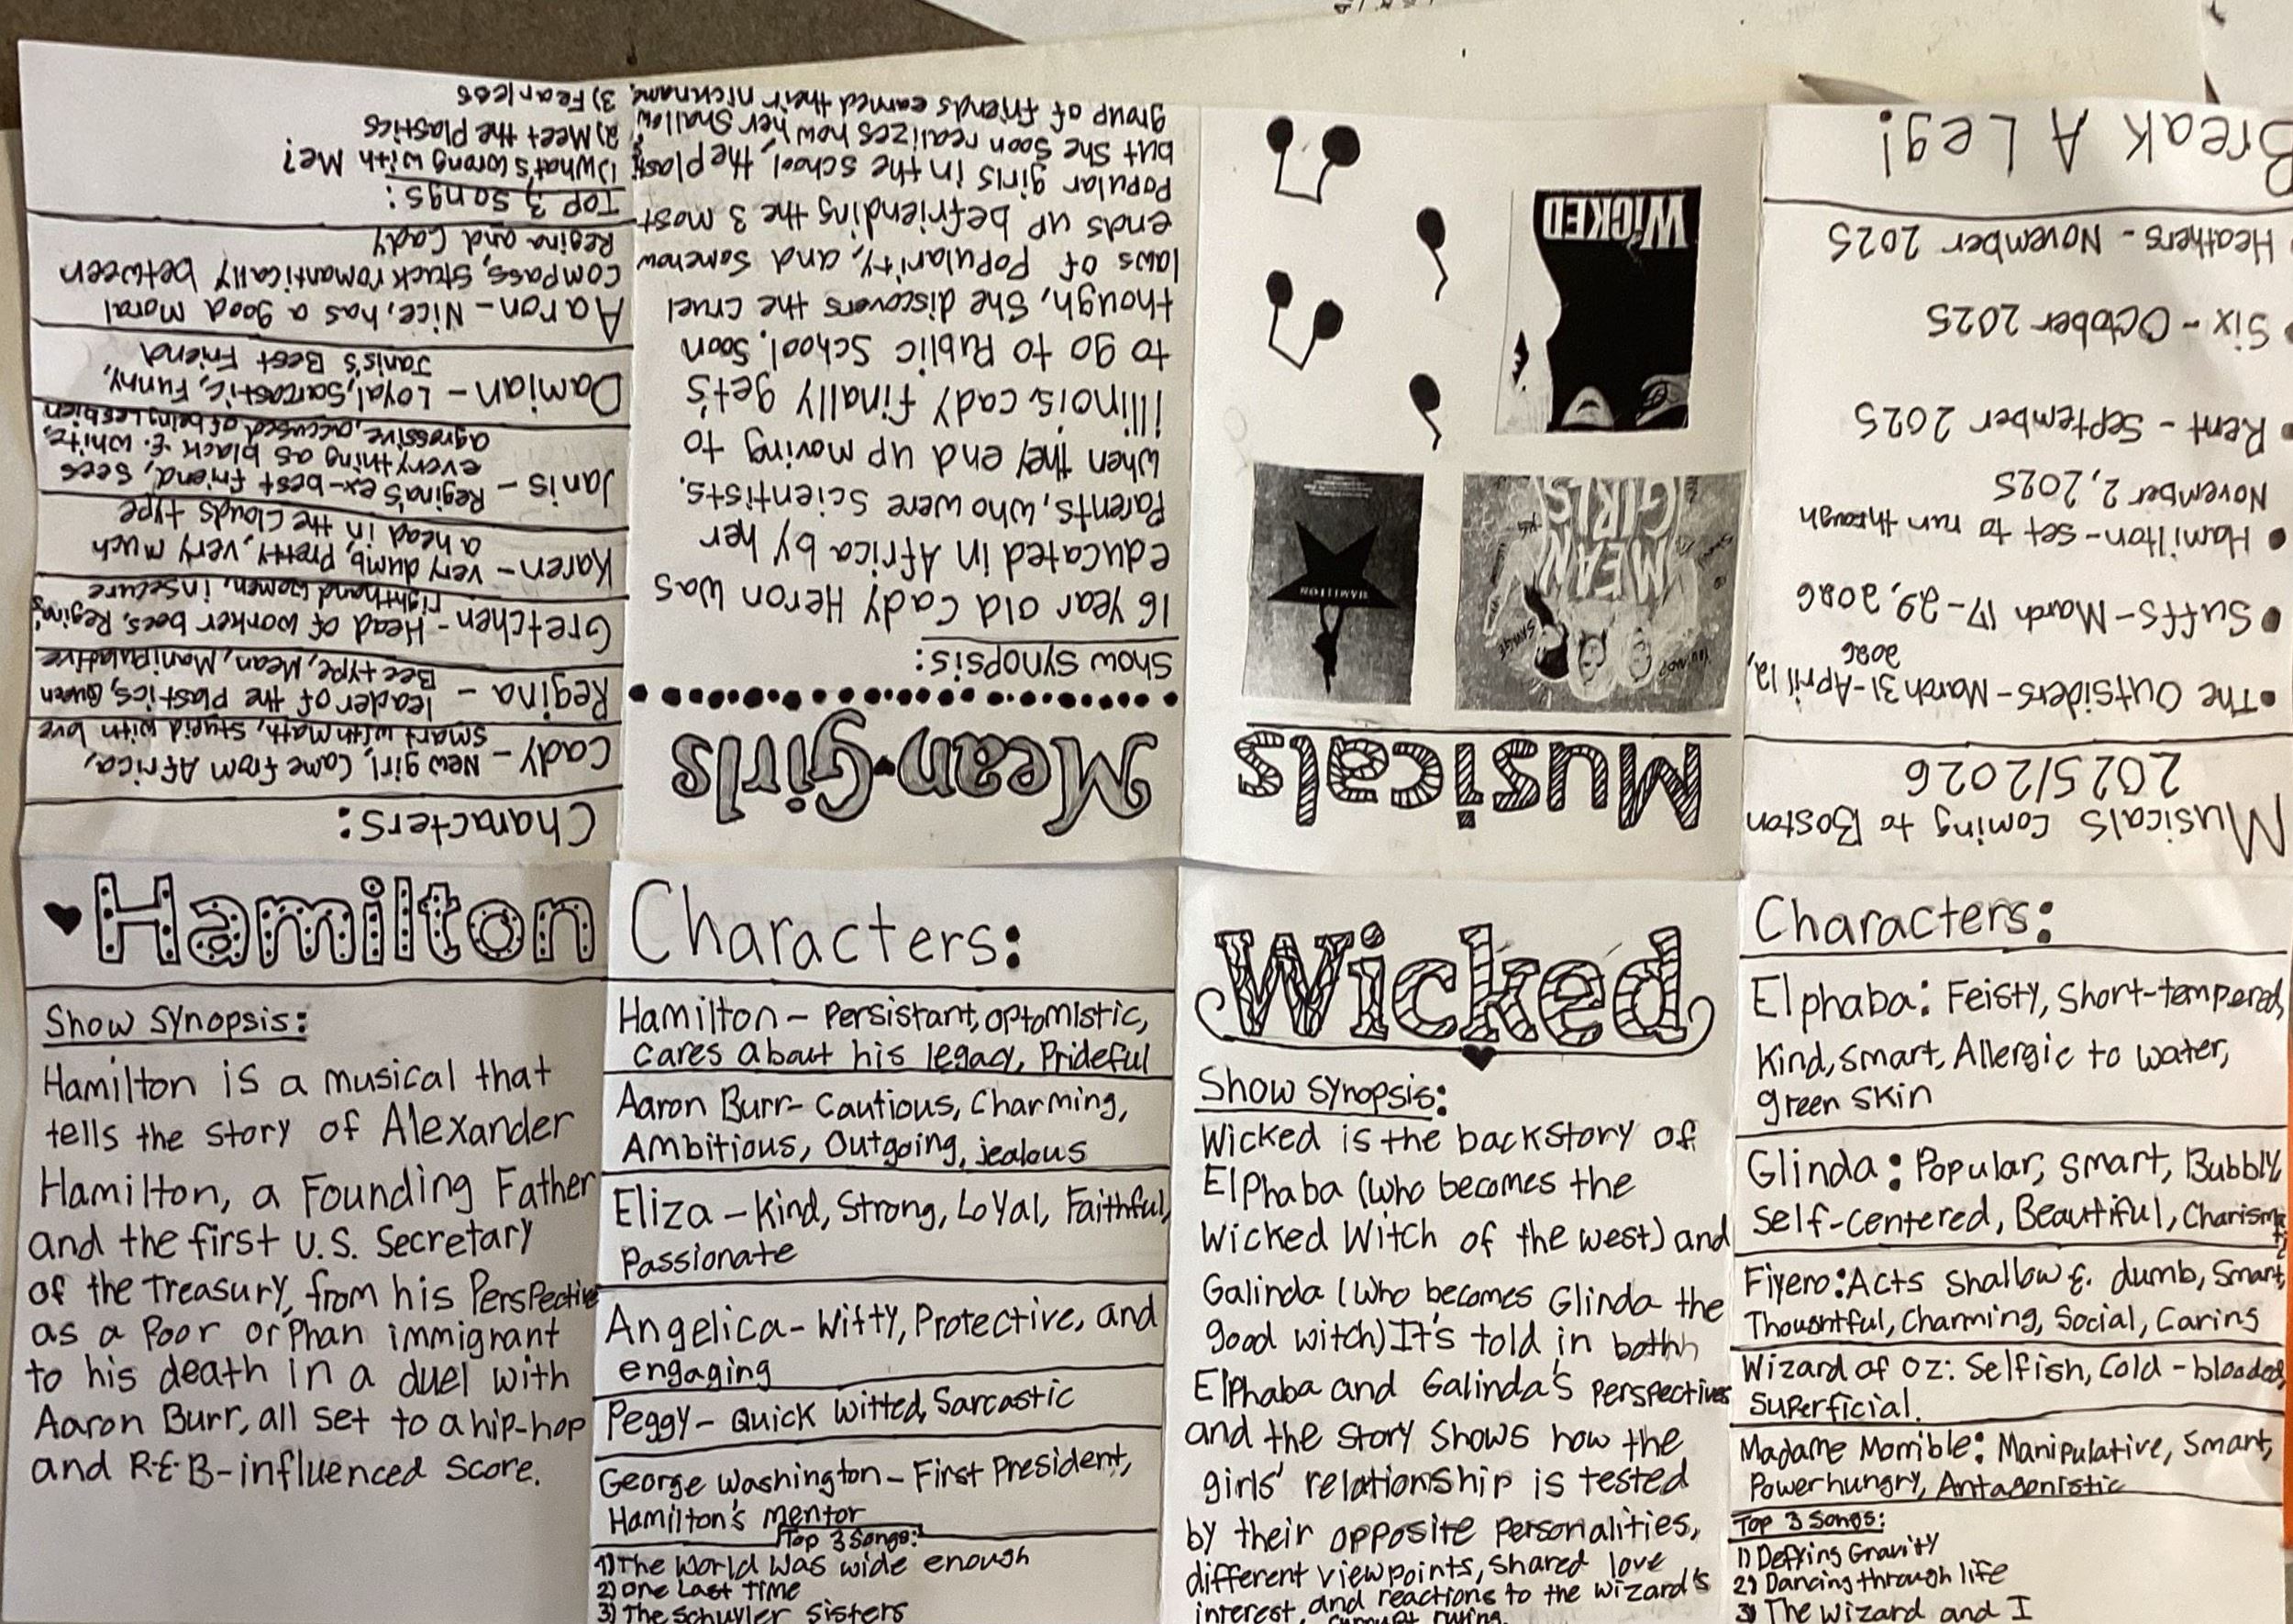 Musicals
WICKED
HAMILTON
MEAN
GIRLS
SAVAGE
Hamilton
Show Synopsis:
Hamilton is a musical that
tells the story of Alexander
Hamilton, a Founding Father
and the first U.S. Secretary
of the Treasury, from his Perspective
as a Poor orphan immigrant
to his death in a duel with
Aaron Burr, all set to a hip-hop
and R&B-influenced score.
Characters:
Hamilton - Persistant, optomistic,
cares about his legacy, Prideful
Aaron Burr- Cautious, Charming,
Ambitious, Outgoing, jealous
Eliza - Kind, Strong, Loyal, Faithful,
Passionate
Angelica - Witty, Protective, and
engaging
Peggy - Quick witted, Sarcastic
George Washington - First President,
Hamilton's mentor
Top 3 Songs:
1) The World Was wide enough
2) One Last Time
3) The Schuyler Sisters
Wicked
Show Synopsis:
Wicked is the backstory of
Elphaba (who becomes the
Wicked Witch of the west) and
Galinda (who becomes Glinda the
good witch) It's told in bothh
Elphaba and Galinda's Perspectives
and the story shows how the
girls' relationship is tested
by their opposite Personalities,
different viewpoints, shared love
interest, and reactions to the wizard's
ruling.
Characters:
Elphaba: Feisty, Short-tempered,
Kind, Smart, Allergic to water,
green skin
Glinda: Popular, smart, Bubbly,
Self-Centered, Beautiful, Charismatic
Fiyero: Acts Shallow & dumb, Smart,
Thoughtful, Charming, Social, Caring
Wizard of Oz: Selfish, Cold-blooded,
Superficial.
Madame Morrible: Manipulative, Smart,
Power hungry, Antagonistic
Top 3 Songs:
1) Defying Gravity
2) Dancing through life
3) The Wizard and I
Mean Girls
Show Synopsis:
16 year old Cady Heron was
educated in Africa by her
Parents, who were Scientists.
When they end up moving to
Illinois, cady finally get's
to go to Public School. Soon
though, She discovers the cruel
laws of Popularity, and somehow
ends up befriending the 3 most
Popular girls in the school, the plastics,
but she soon realizes how her shallow
group of friends earned their nickname.
Characters:
Cady - New girl, Came from Africa,
smart with math, stupid with love
Regina - leader of the Plastics, Queen
Bee type, Mean, Manipulative
Gretchen - Head of worker bees, Regina's
right hand women, insecure
Karen - very dumb, Pretty, very much
a head in the clouds type
Janis - Regina's ex-best friend, sees
everything as black & white,
agressive, accused of being Lesbian
Damian - Loyal, Sarcastic, Funny,
Janis's Best Friend
Aaron - Nice, has a good moral
compass, Stuck romantically between
Regina and Cady
Top 3 Songs:
1) What's wrong with Me?
2) Meet the Plastics
3) Fearless
Musicals Coming to Boston
2025/2026
• The Outsiders - March 31 - April 12,
2026
• Suffs - March 17 - 29, 2026
• Hamilton - set to run through
November 2, 2025
• Rent - September 2025
• Six - October 2025
• Heathers - November 2025
Break A Leg!